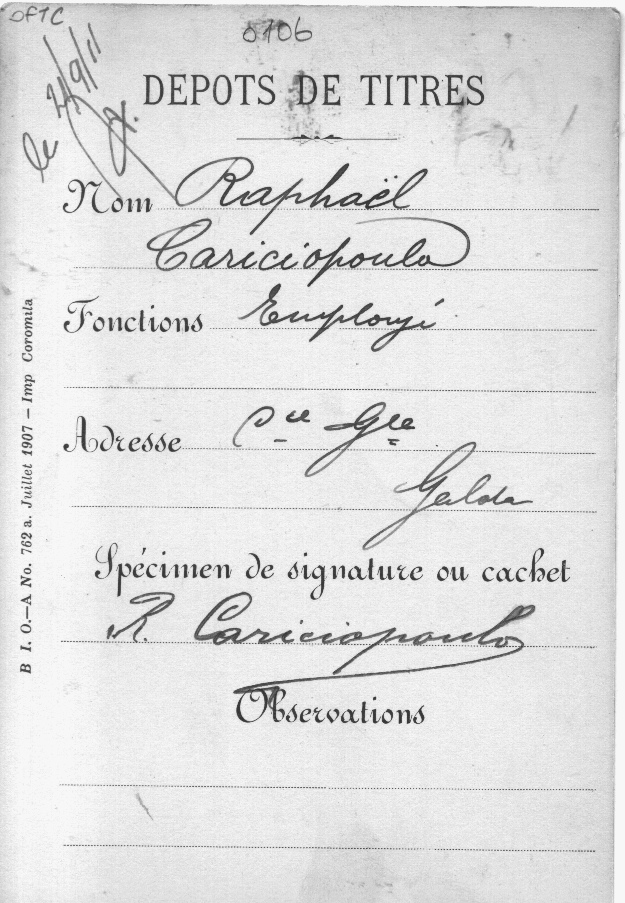 OFTC
0706
le 24/9/11
DEPOTS DE TITRES
Nom Raphaël
Cariciopoulo
Fonctions Employé
Adresse Cie Gle
Galata
Spécimen de signature ou cachet
R. Cariciopoulo
Observations
B I. O.—A No. 762 a. Juillet 1907 — Imp Coromila